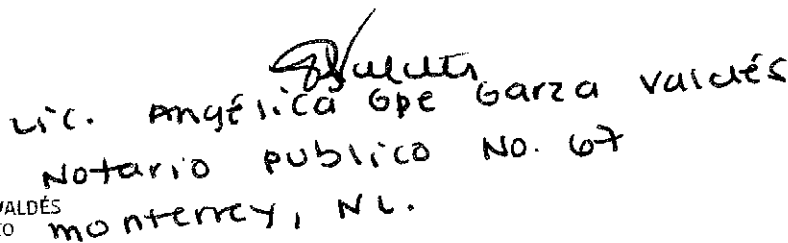 Lic. Angélica Gpe Garza Valdés
Notario publico No. 67
VALDÉS
TO
monterrey, NL.